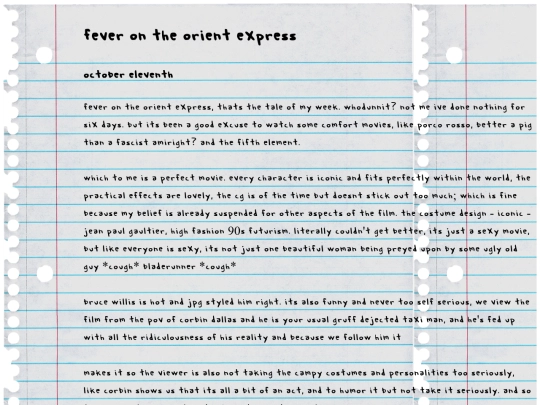 fever on the orient express
october eleventh
fever on the orient express, thats the tale of my week. whodunnit? not me ive done nothing for
six days. but its been a good excuse to watch some comfort movies, like porco rosso, better a pig
than a fascist amiright? and the fifth element.
which to me is a perfect movie. every character is iconic and fits perfectly within the world, the
practical effects are lovely, the cg is of the time but doesnt stick out too much; which is fine
because my belief is already suspended for other aspects of the film. the costume design - iconic -
jean paul gaultier, high fashion 90s futurism. literally couldn't get better, its just a sexy movie,
but like everyone is sexy, its not just one beautiful woman being preyed upon by some ugly old
guy *cough* bladerunner *cough*
bruce willis is hot and jpg styled him right. its also funny and never too self serious, we view the
film from the pov of corbin dallas and he is your usual gruff dejected taxi man, and he's fed up
with all the ridiculousness of his reality and because we follow him it
makes it so the viewer is also not taking the campy costumes and personalities too seriously,
like corbin shows us that its all a bit of an act, and to humor it but not take it seriously. and so